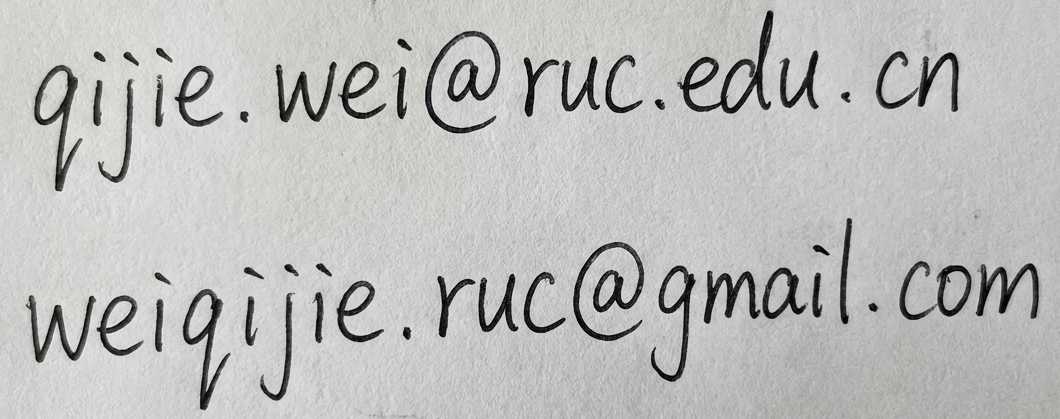 qijie.wei@ruc.edu.cn
weiqijie.ruc@gmail.com